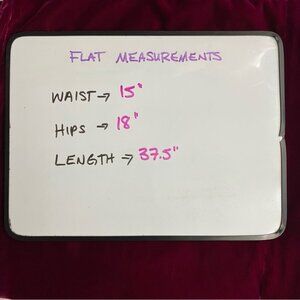 FLAT MEASUREMENTS
WAIST → 15"
HIPS → 18"
LENGTH → 37.5"